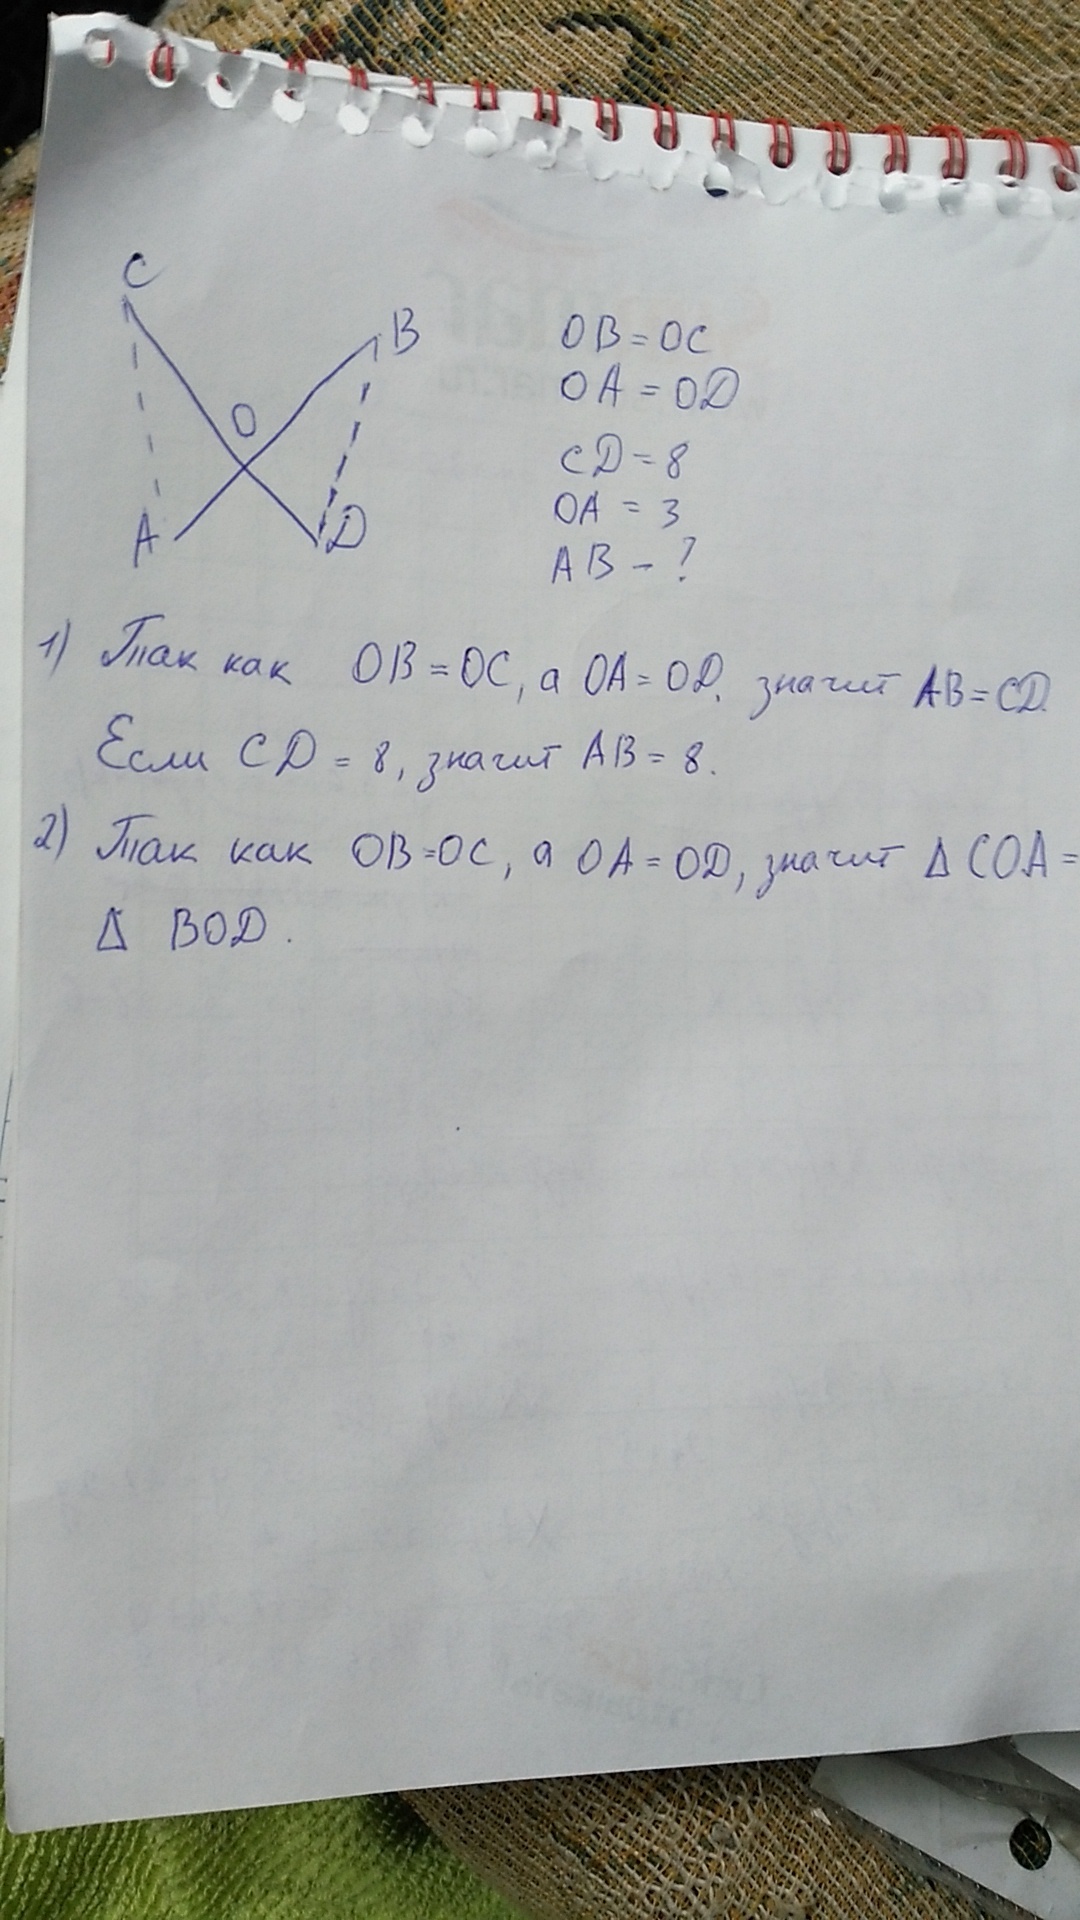 C
B
O
A
D
OB = OC
OA = OD
CD = 8
OA = 3
AB - ?
1) Так как OB = OC, а OA = OD, значит AB = CD.
Если CD = 8, значит AB = 8.
2) Так как OB = OC, а OA = OD, значит Δ COA =
Δ BOD.